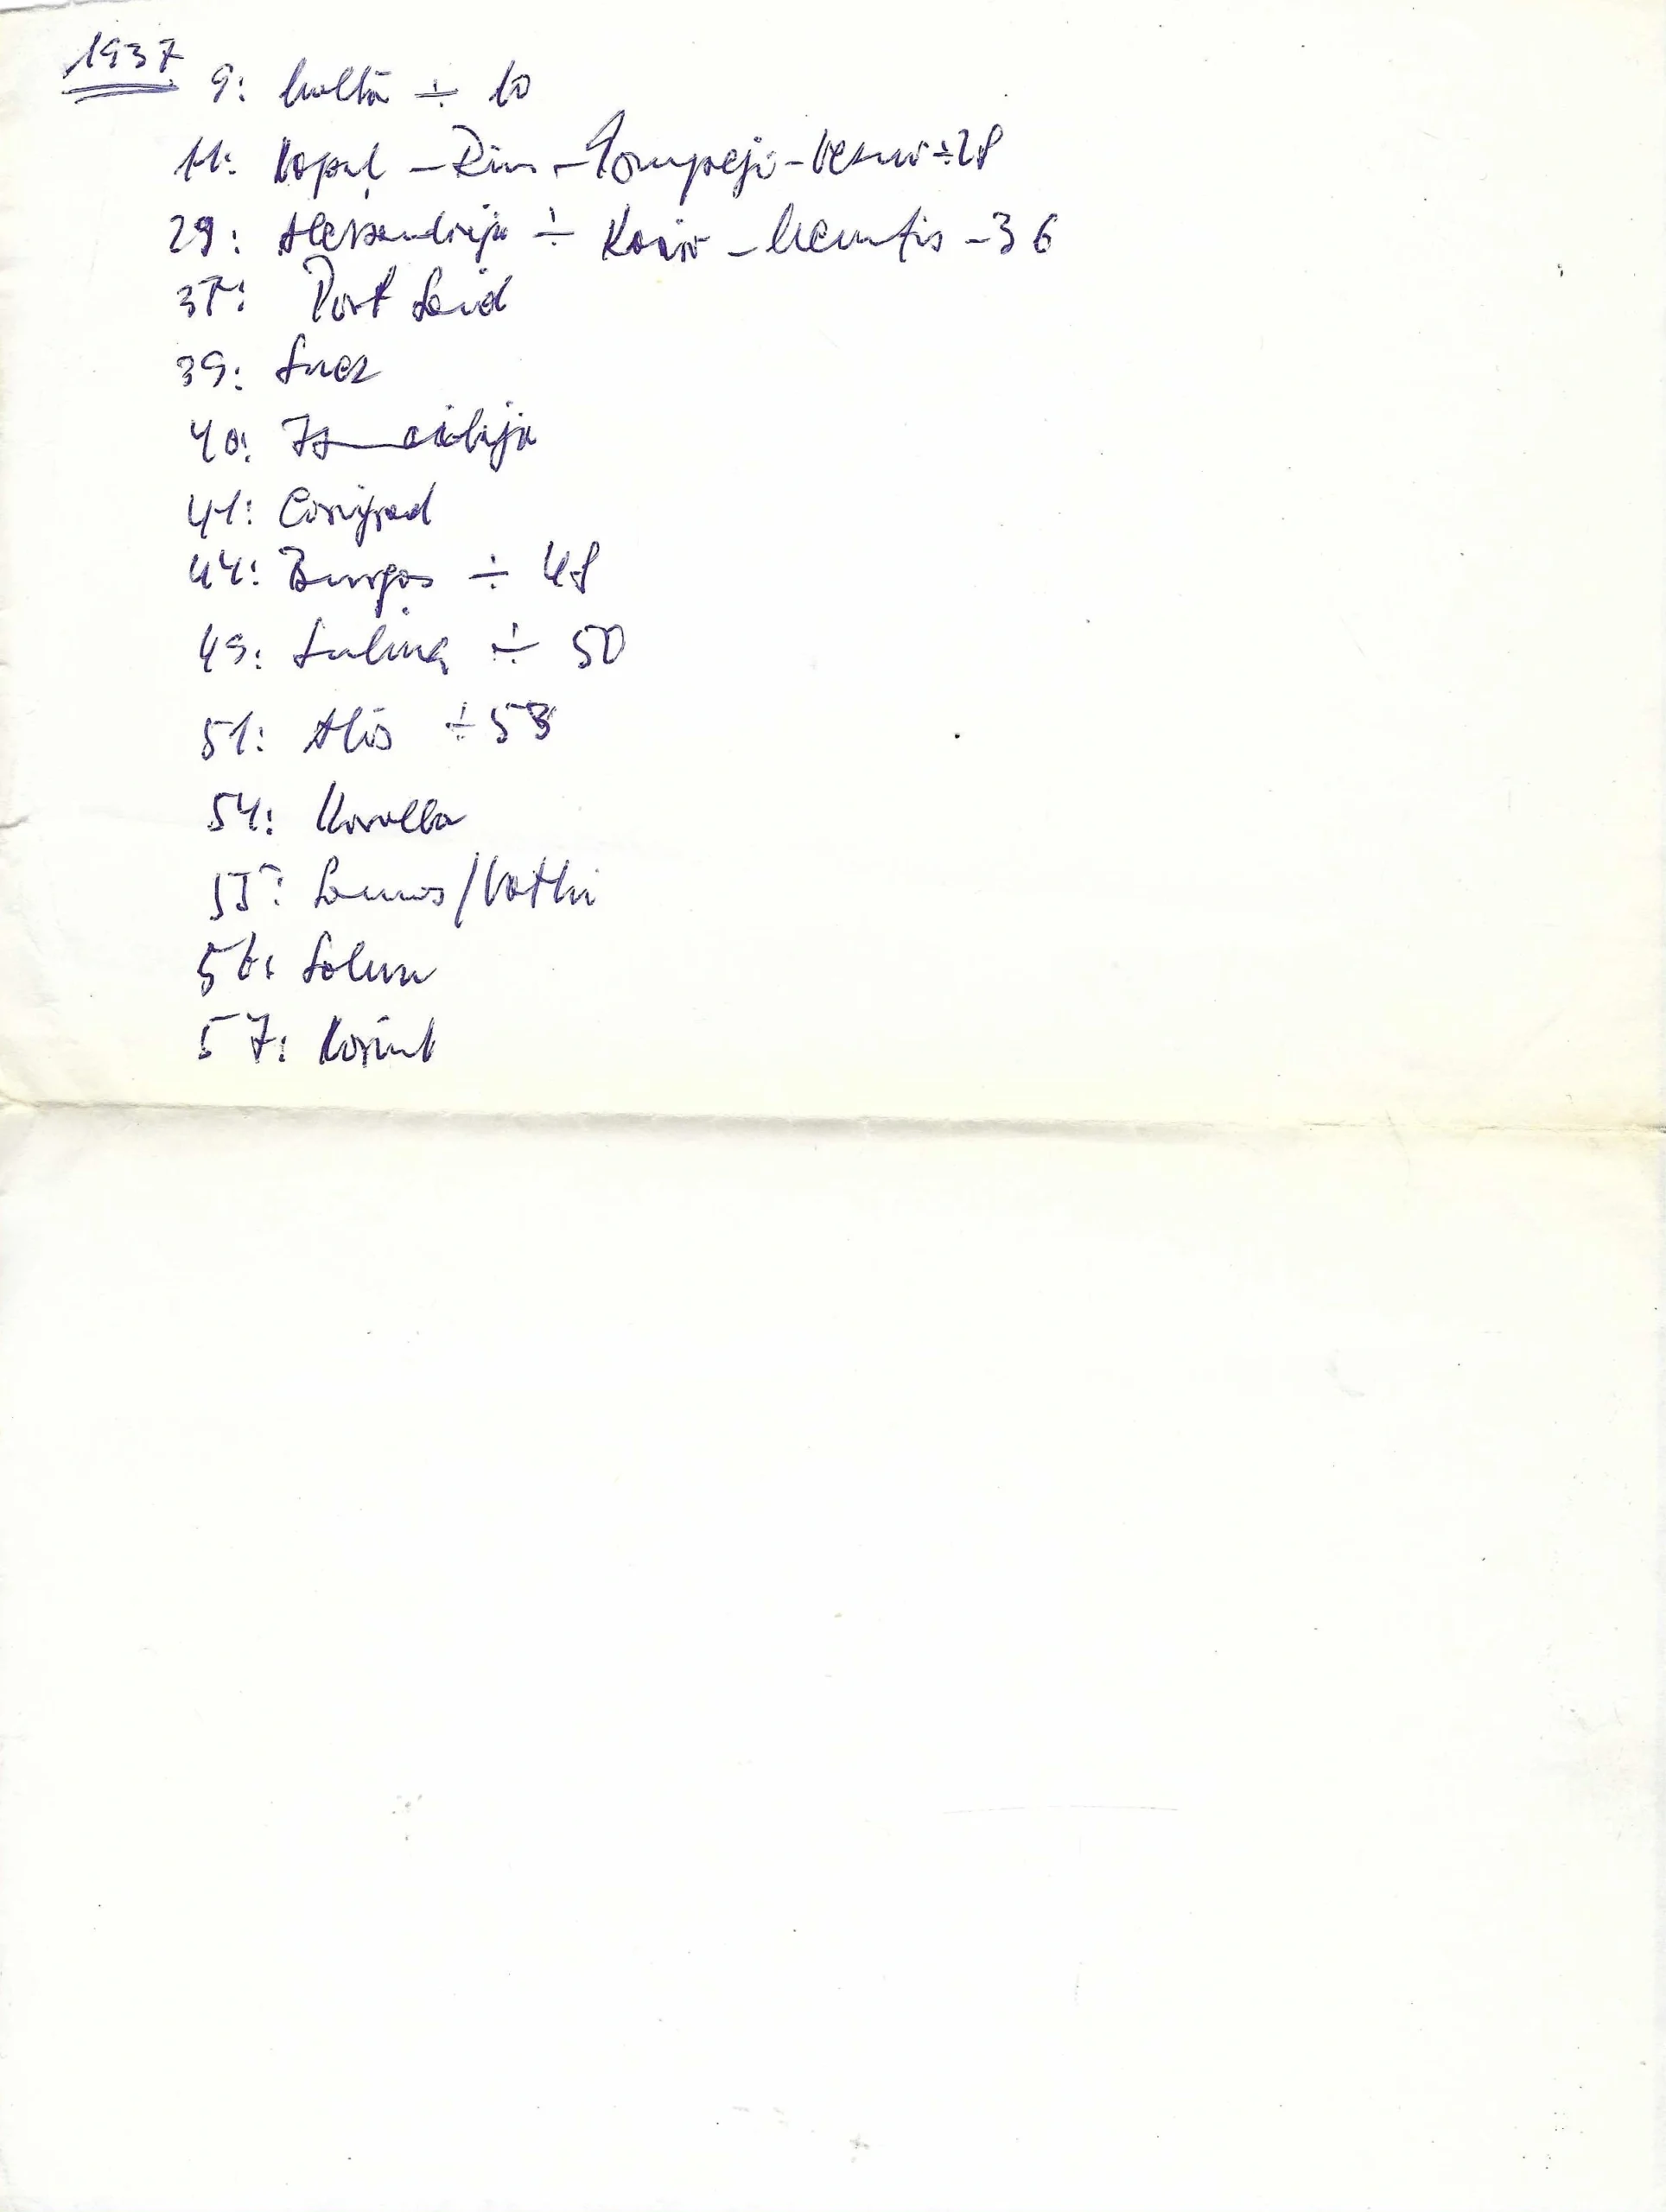 1937
9: Malta ÷ 10
11: Napulj – Rim – Pompeji – Vezuv ÷ 28
29: Aleksandrija ÷ Kairo – Memfis – 36
37: Port Said
39: Suez
40: Ismailija
41: Carigrad
44: Burgas ÷ 48
49: Sulina ÷ 50
51: ÷ 53
54: Kavalla
55: Samos/Vathi
56: Solun
57: Korint